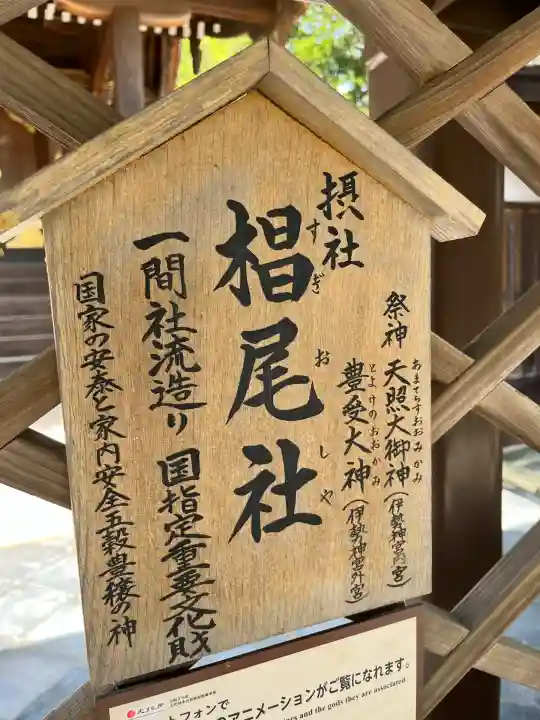 摂社
椙尾社
すぎおしや
祭神 天照大御神(伊勢神宮内宮)
あまてらすおおみかみ
豊受大神(伊勢神宮外宮)
とよけのおおかみ
一間社流造り 国指定重要文化財
国家の安泰と家内安全五穀豊穣の神
文化庁
トフォンで
のアニメーションがご覧になれます。
and the gods they are associated